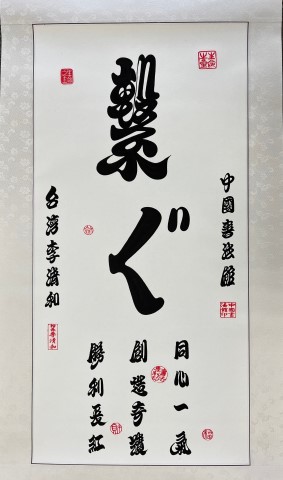 繋ぐ
中國書法館
同心一氣
創造奇蹟
勝利長紅
台灣李清和